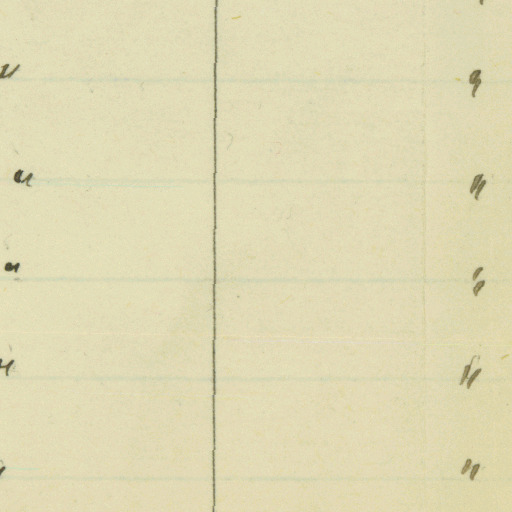 " "
" "
" "
" "
" "